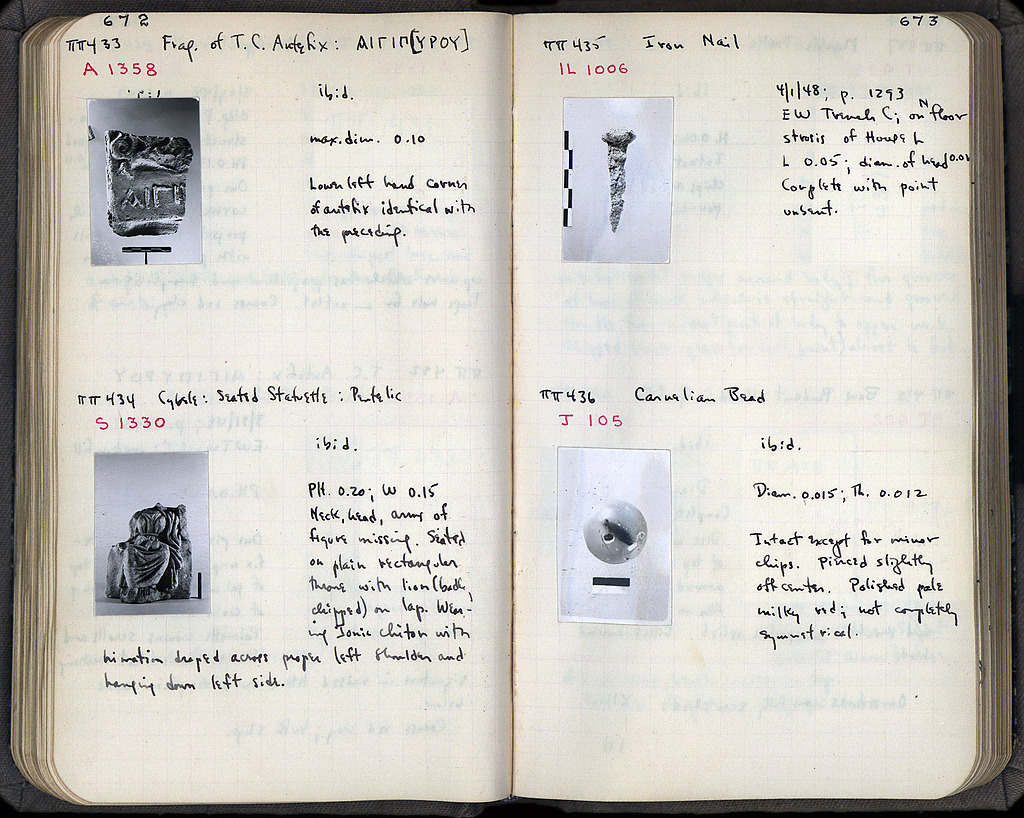 672
ΠΠ433 Frag. of T.C. Antefix: ΔΙΓΙΠ[ΥΡΟΥ]
A 1358
ibid.
max. dim. 0.10
Lower left hand corner
of antefix identical with
the preceding.
ΔΙΓΙ
ΠΠ434 Cybele: Seated Statuette: Pentelic
S 1330
ibid.
PH. 0.20; W 0.15
Neck, head, arms of
figure missing. Seated
on plain rectangular
throne with lion (badly
chipped) on lap. Wear-
ing Ionic chiton with
himation draped across proper left shoulder and
hanging down left side.
673
ΠΠ435 Iron Nail
IL 1006
4/1/48; p. 1293
EW Trench C; on N floor
strosis of House L
L 0.05; diam. of head
Complete with point
unbent.
ΠΠ436 Carnelian Bead
J 105
ibid.
Diam. 0.015; Th. 0.012
Intact except for minor
chips. Pierced slightly
off center. Polished pale
milky red; not completely
symmetrical.